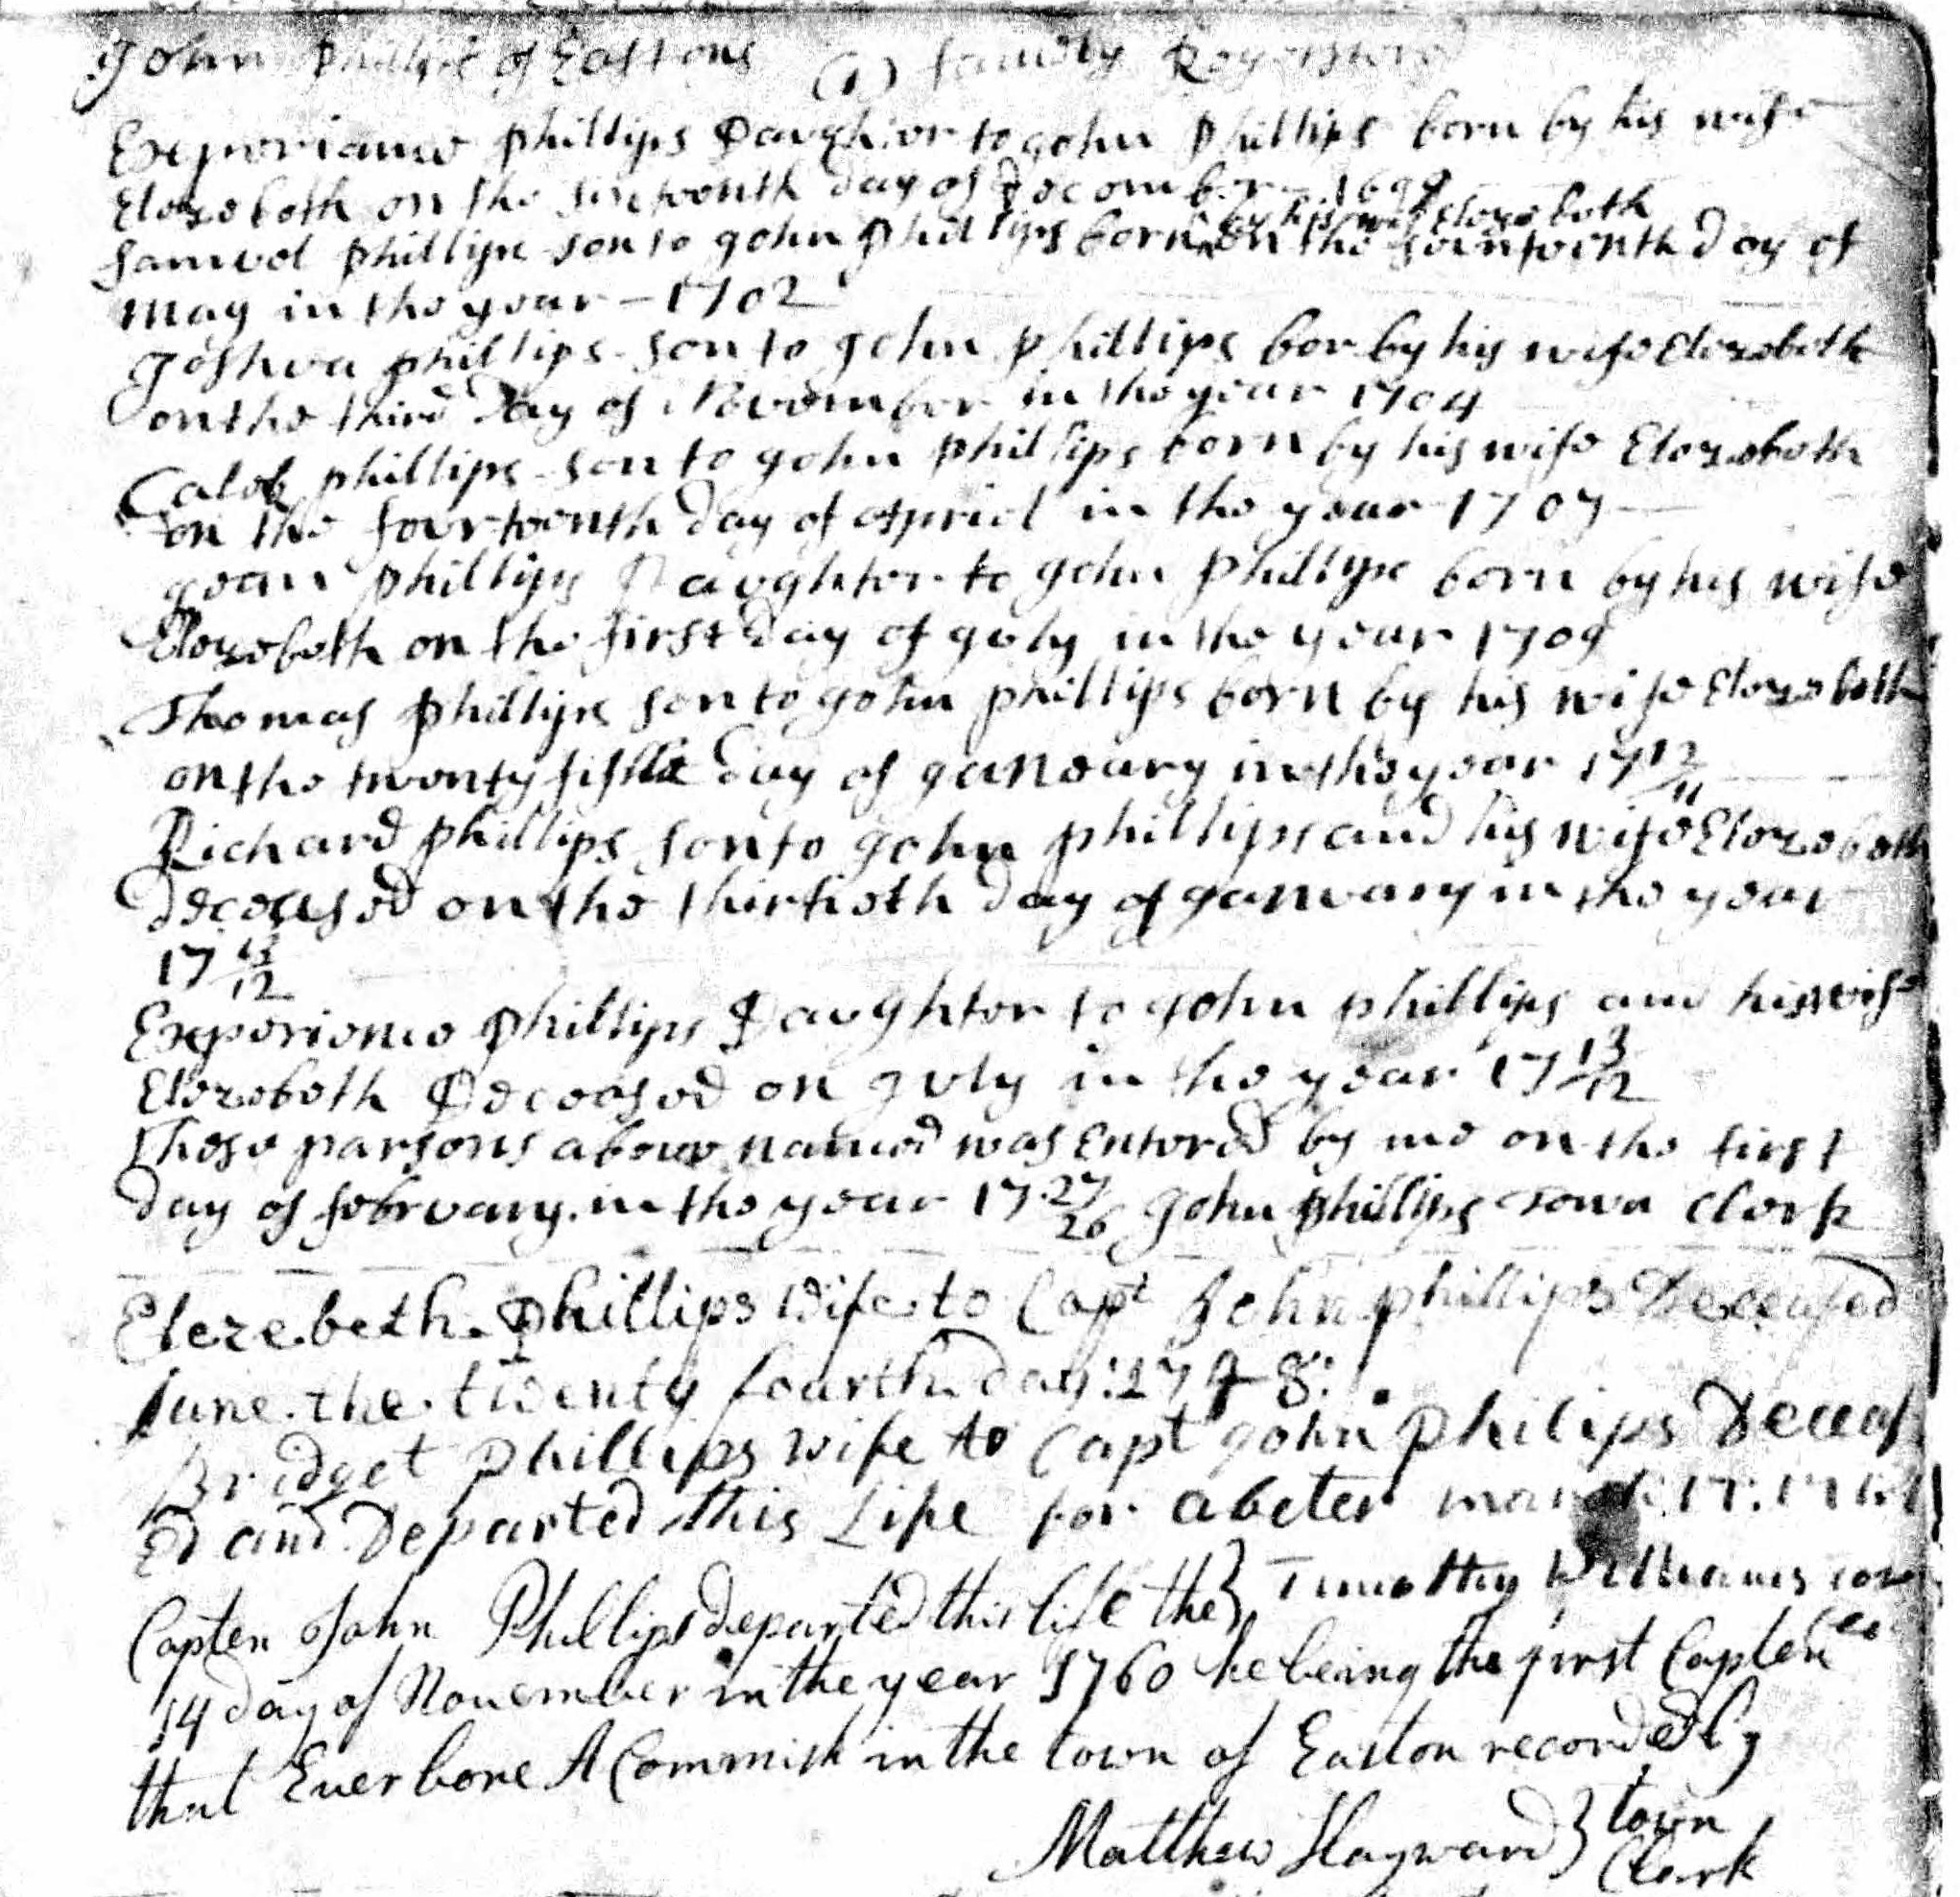 John Phillips of Eastons (1) family Regestered
Experiance phillips Daughter to John Phillips born by his wife
Elezebeth on the sixteenth day of December 1699
by his wife Elezebeth
Samuel phillips son to John phillips born ^ on the seventeenth day of
may in the year - 1702
Joshua phillips son to John phillips bor by his wife Elezebeth
on the third Day of November in the year 1704
Caleb phillips son to John phillips born by his wife Elezebeth
on the fourteenth day of apriel in the year 1707
Jean phillips Daughter to John phillips born by his wife
Elezebeth on the first day of July in the year 1709
Thomas phillips son to John phillips born by his wife Elezebeth
on the twenty fifth day of Janeuary in the year 17 12/11
Richard phillips son to John phillips and his wife Elezebeth
deceased on the thirtieth day of January in the year
17 13/12
Experience phillips Daughter to John phillips and his wife
Elezebeth Deceased on July in the year 17 13/12
these parsons above named was Entered by me on the first
day of february in the year 17 27/26 John phillips Town Clerk
Elezebeth Phillips Wife to Capt John phillips Deceased
June the twenty fourth day: 1748:
Bridget Phillips wife to Capt John Philips Deceas
Ed and Departed this Life for abeter march 17:
Timothy Williams
Capten John Phillips departed this life the }
14 day of November in the year 1760 he being the first Capten
that Ever bore A Commish in the town of Easton recorded by
Matthew Hayward } town
Clerk